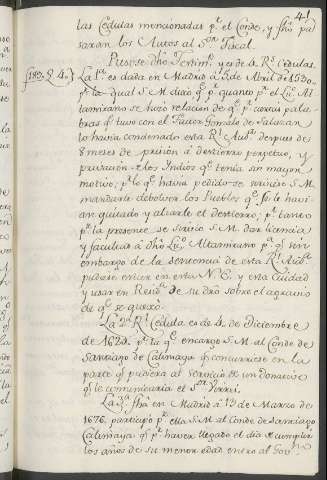 41
las Cedulas mencionadas p.r el Conde, y fho pa
saron los Autos al S.or Fiscal.
Puso se dho Testim.o yerde de R.s Cedulas.
La 1.a es dada en Madrid a 5 de Abril de 1530
p.r la qual S. M. dixo q.e p.r quanto p.r el Lic. Al
tamirano se hizo relacion de q.e p.r ciertas pala
bras q.e tuvo con el Factor Gonzalo de Salazar
lo havia condenado esta R.l Aud.a despues de
8 meses de prision à destierro perpetuo, y
privacion de los Indios q.e tenia sin mayor
motivo; p.r lo q.e havia pedido se sirviese S. M.
mandarle debolver los Pueblos q.e se le havi
an quitado y alzarle el destierro; p.r tanto
p.r la presente se sirvio S. M. dar licencia
y facultad à dho Lic. Altamirano p.a q.e sin
embargo de la sentencia de esta R.l Aud.a
pudiese estar en esta N. E. y esta Ciudad
y usar en Resid.a de su dro sobre el agravio
de q.e se quexò.
La 2.a R.l Cedula es de 4 de Diciembre
de 1624 p.r la q.e encargò S. M. al Conde de
Santiago de Calimaya q.e concurriese en la
parte q.e pudiera al servicio de un Donativo
q.e le comunicaria el S.or Virrei.
La 3.a fha en Madrid à 13 de Marzo de
1676, participò p.r ella S. M. al Conde de Santiago
Calimaya q.e p.r haver llegado el dia de cumplir
los años de su menor edad entrò al Gov.no